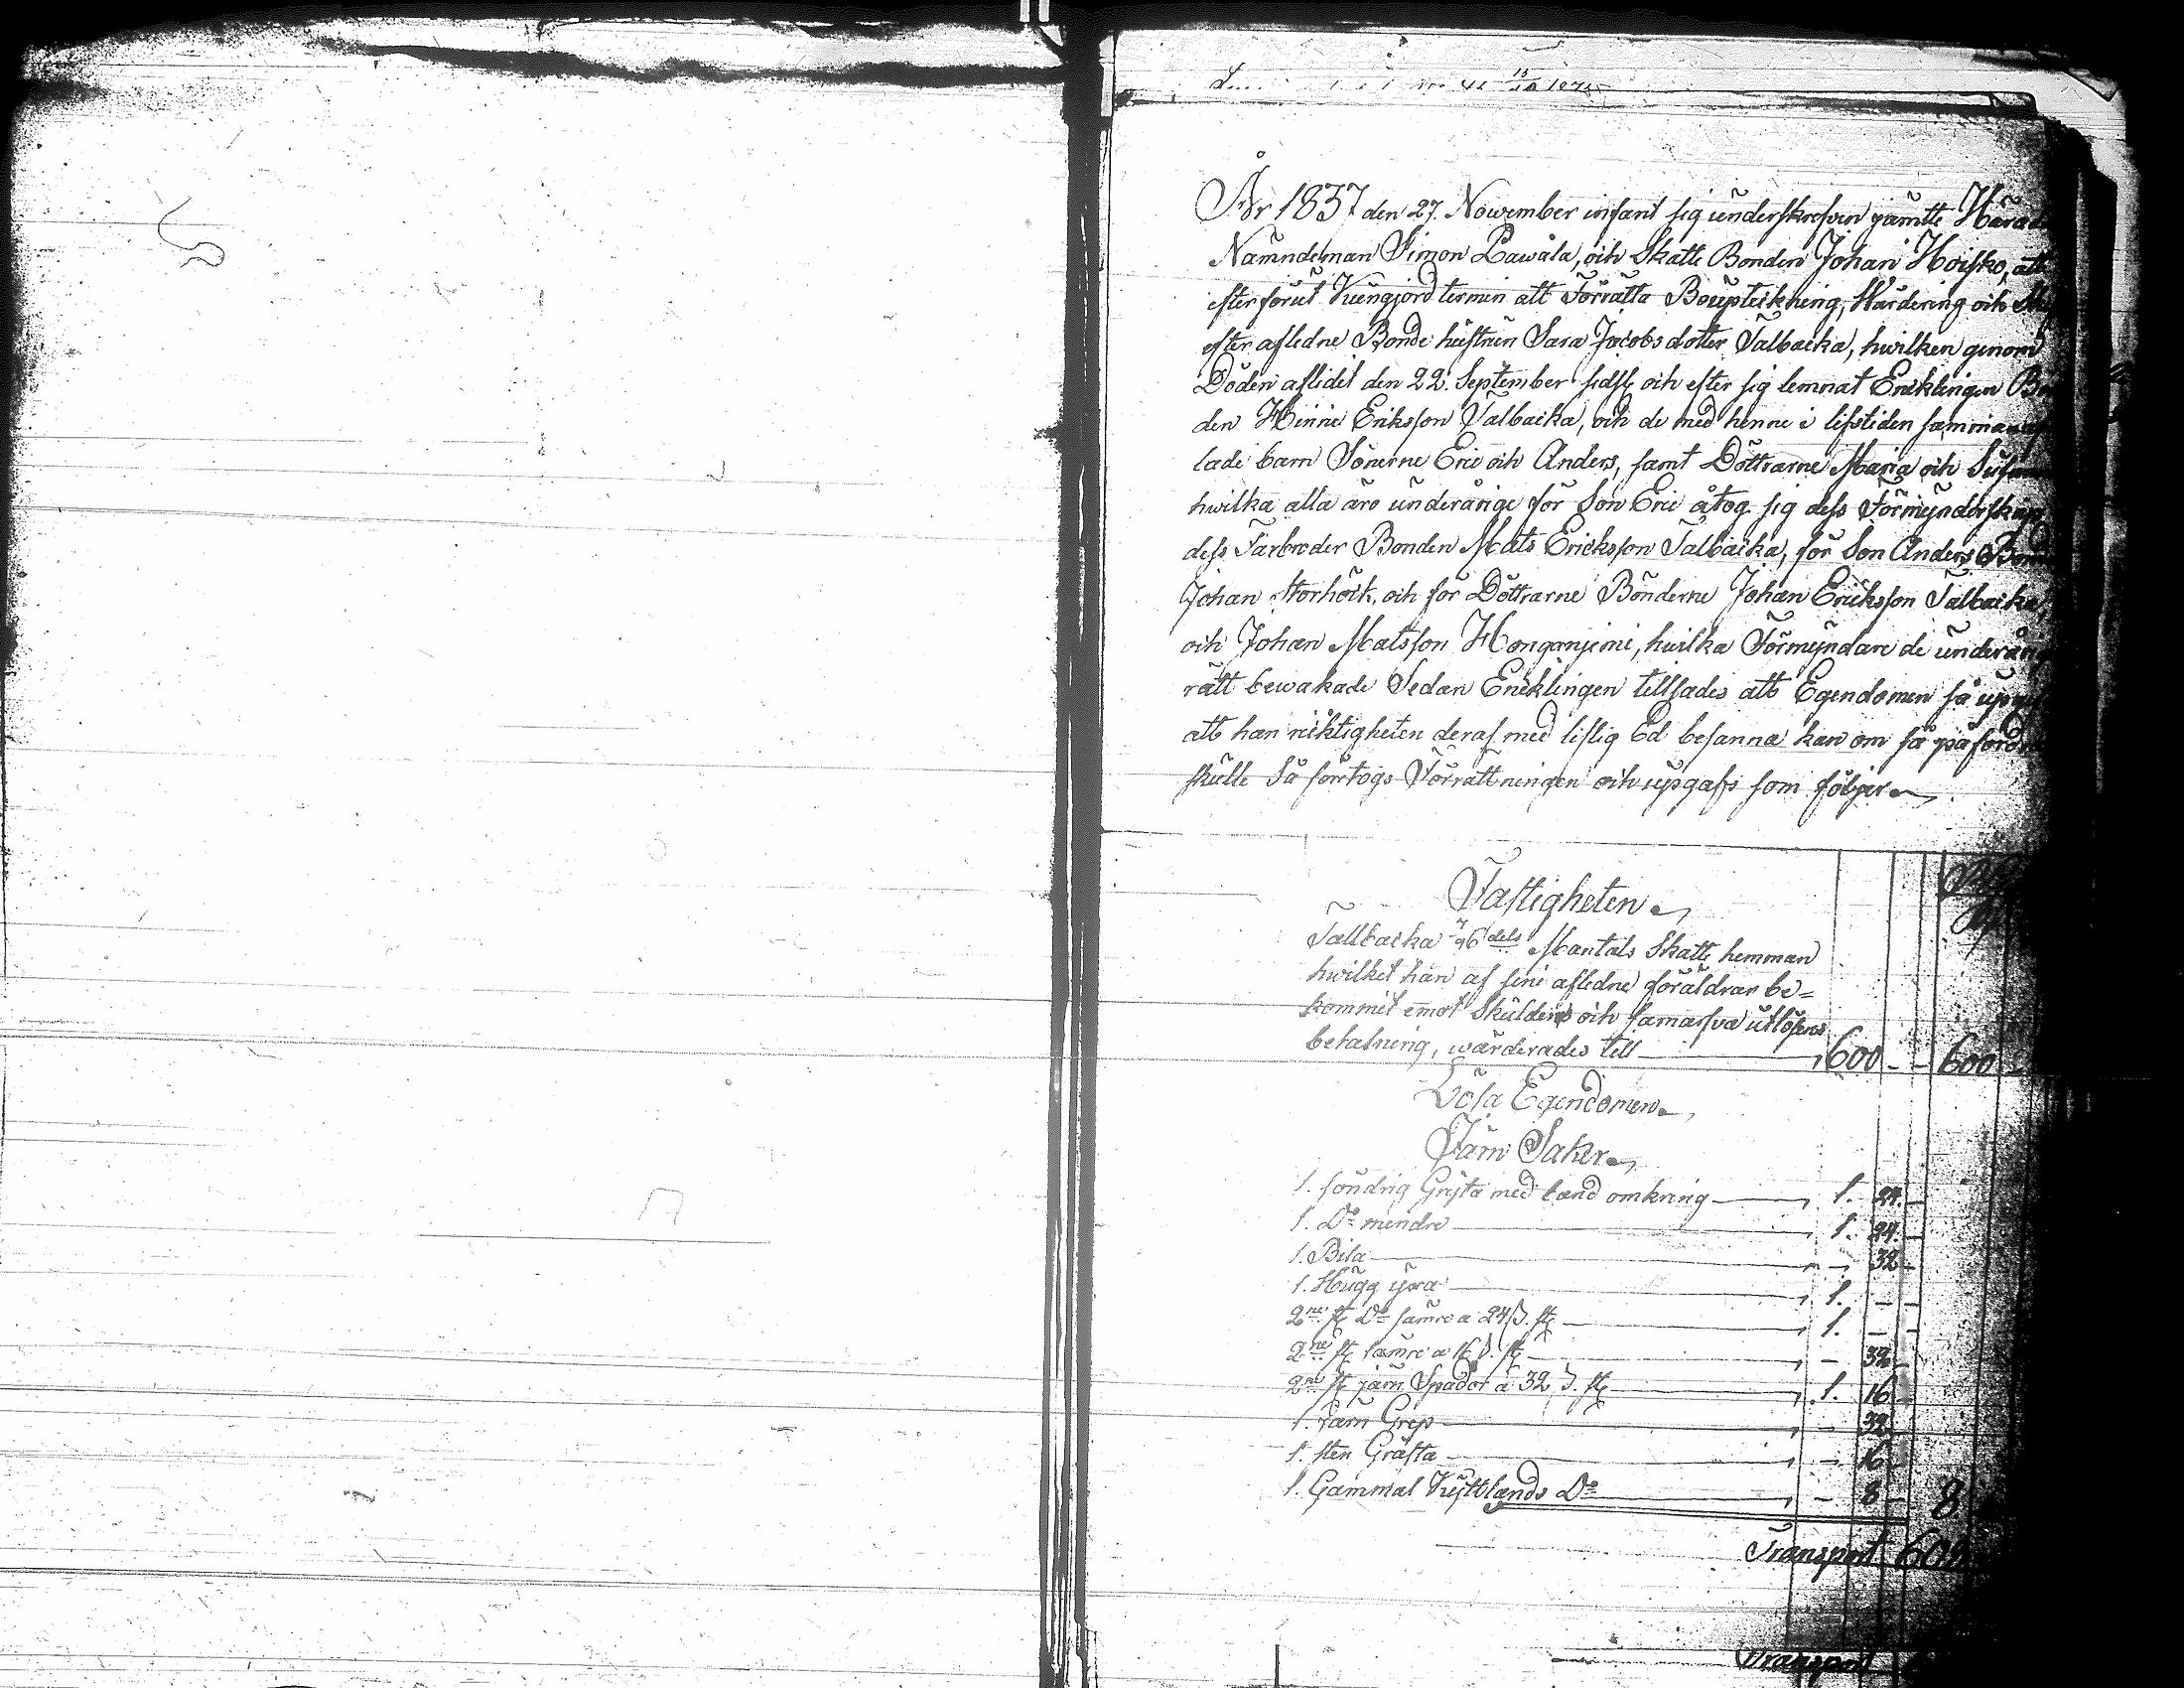 År 1837 den 27. November infant sig underskrefven jämte Härads
Nämndeman Simon Pawåla, och Skatte Bonden Johan Hoisko, att
efter förut Kungjord termin att Förrätta Bouptekning, Wärdering och
efter afledne Bonde hustrun Sara Jacobs dotter Talbacka, hwilken genom
Döden aflidit den 22. September sidstl. och efter sig lemnat Encklingen
den Hinric Eriksson Talbacka, och de med henne i lifstiden samman
lade barn Sönerne Eric och Anders, samt Döttrarne Maria och
hwilka alla äro underårige för Son Eric åtog sig dess Förmynderskap
dess Farbroder Bonden Mats Ericksson Talbacka, för Son Anders
Johan Storhöck, och för Döttrarne Bönderne Johan Ericksson Talbacka,
och Johan Matsson Honganjemi, hwilka Förmyndare de
rätt bewakade Sedan Encklingen tillsades att Egendomen så
att han ricktigheten deraf med liflig Ed besanna kan om så
skulle Så förtogs Förrättningen och upgafs som följer
Fastigheten
Tallbacka 7/96 dels Mantals Skatte hemman
hwilket han af sine afledne föräldrar be=
kommit emot Skuldens och samarfva utlösens
betalning, wärderades till 600 - - 600
Lösa Egendomen
Järn Saker
1. söndrig Gryta med band omkring 1. 24. -
1. Do mindre 1. 24. -
1. Bila - 32 -
1. Hugg yxa 1. - -
2ne st. Do sämre a 24 s. st. 1. - -
2ne st. sämre a 16 s. st. - 32 -
2ne st. järn Spador a 32 s. st. 1. 16 -
1. Järn Grep - 32 -
1. sten Gräfta - 16 -
1. Gammal Kyttlands Do - 8 - 8
Transport
Transport